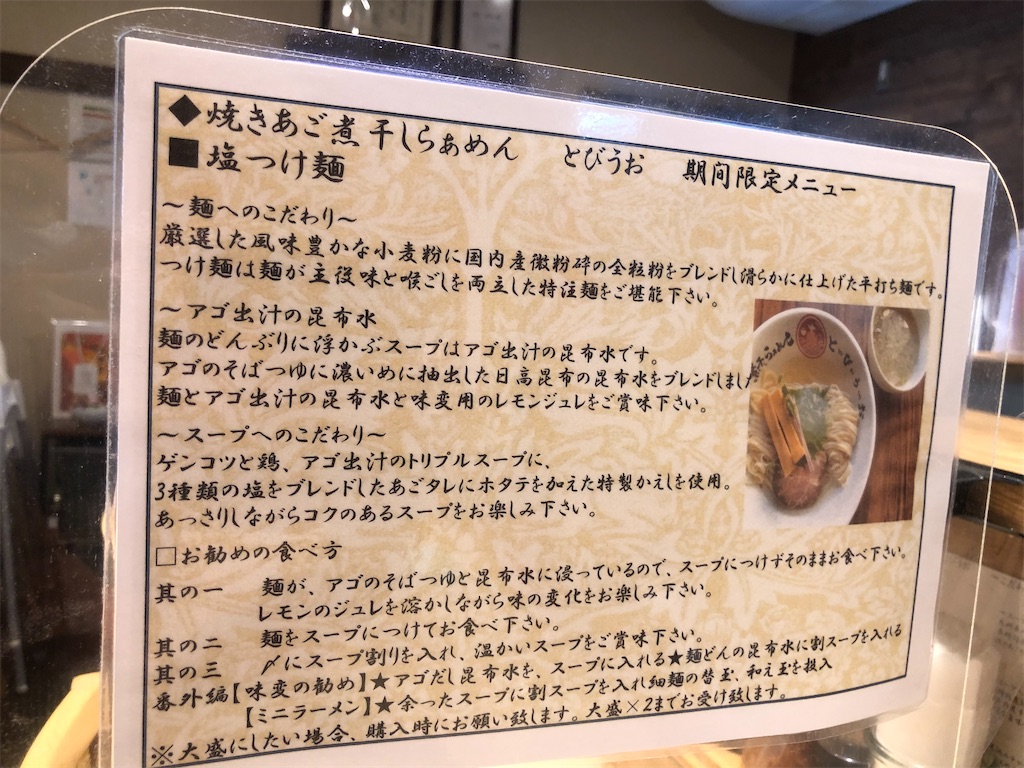 ◆焼きあご煮干しらぁめん とびうお 期間限定メニュー
■塩つけ麺
～麺へのこだわり～
厳選した風味豊かな小麦粉に国内産微粉砕の全粒粉をブレンドし滑らかに仕上げた平打ち麺です。
つけ麺は麺が主役味と喉ごしを両立した特注麺をご堪能下さい。
～アゴ出汁の昆布水
麺のどんぶりに浮かぶスープはアゴ出汁の昆布水です。
アゴのそばつゆに濃いめに抽出した日高昆布の昆布水をブレンドしまし
麺とアゴ出汁の昆布水と味変用のレモンジュレをご賞味下さい。
～スープへのこだわり～
ゲンコツと鶏、アゴ出汁のトリプルスープに、
3種類の塩をブレンドしたあごタレにホタテを加えた特製かえしを使用。
あっさりしながらコクのあるスープをお楽しみ下さい。
□お勧めの食べ方
其の一 麺が、アゴのそばつゆと昆布水に浸っているので、スープにつけずそのままお食べ下さい。
レモンのジュレを溶かしながら味の変化をお楽しみ下さい。
其の二 麺をスープにつけてお食べ下さい。
其の三 〆にスープ割りを入れ、温かいスープをご賞味下さい。
番外編【味変の勧め】★アゴだし昆布水を、スープに入れる★麺どんの昆布水に割スープを入れる
【ミニラーメン】★余ったスープに割スープを入れ細麺の替玉、和え玉を投入
※大盛にしたい場合、購入時にお願い致します。大盛×2までお受け致します。